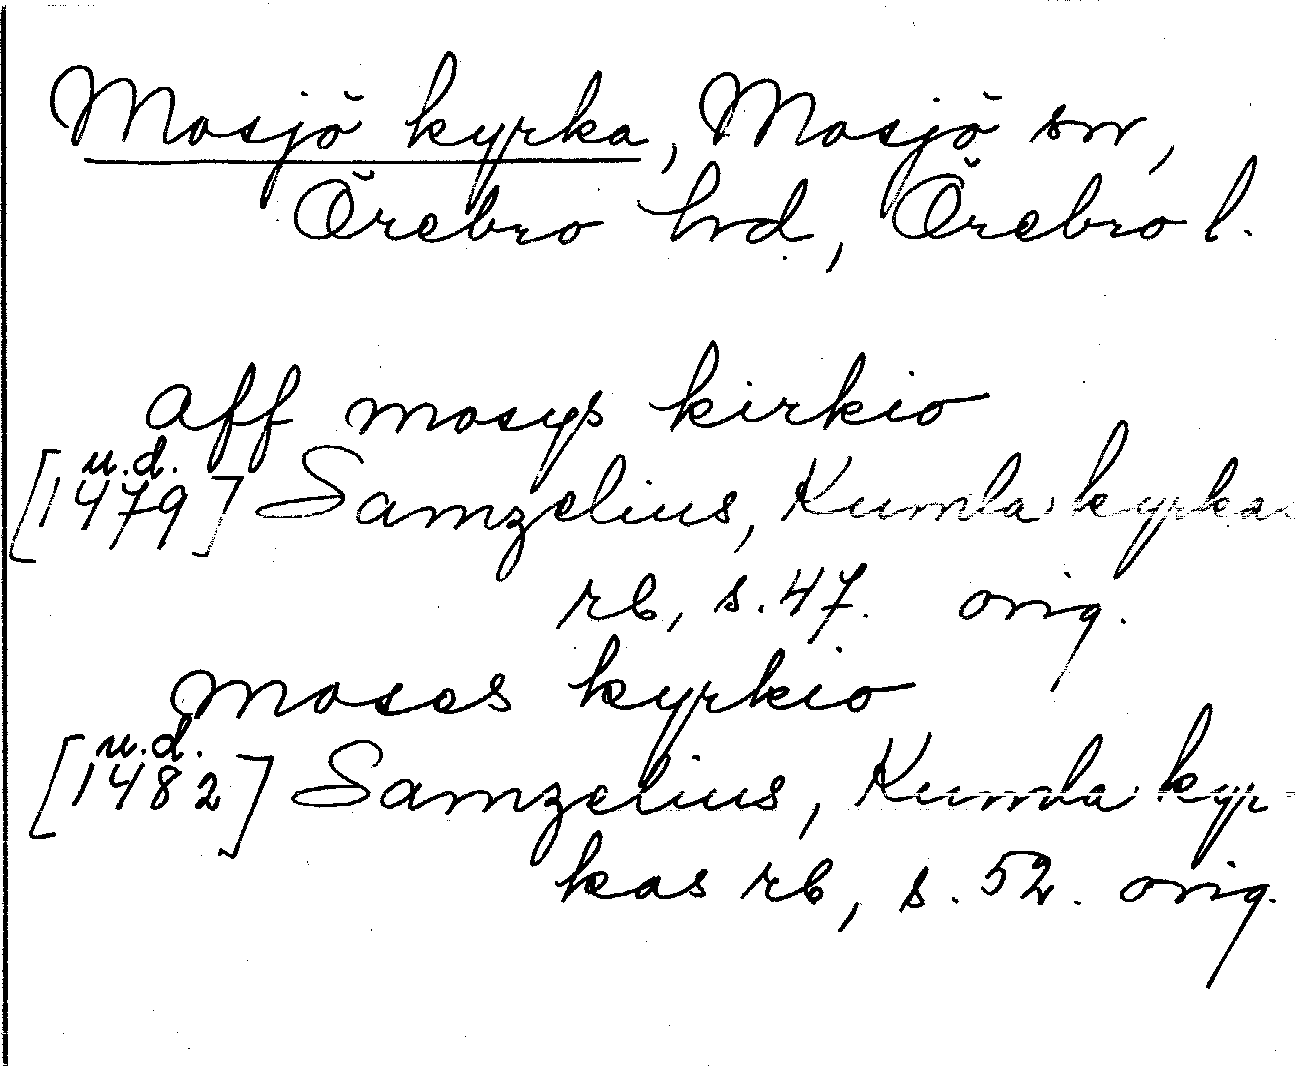 Mosjö kyrka, Mosjö sn,
Örebro hd, Örebro l.
aff mosys kirkio
u.d.
[1479] Samzelius, Kumla kyrkas
rb, s. 47. orig.
moses kyrkio
u.d.
[1482] Samzelius, Kumla kyr
kas rb, s. 52. orig.